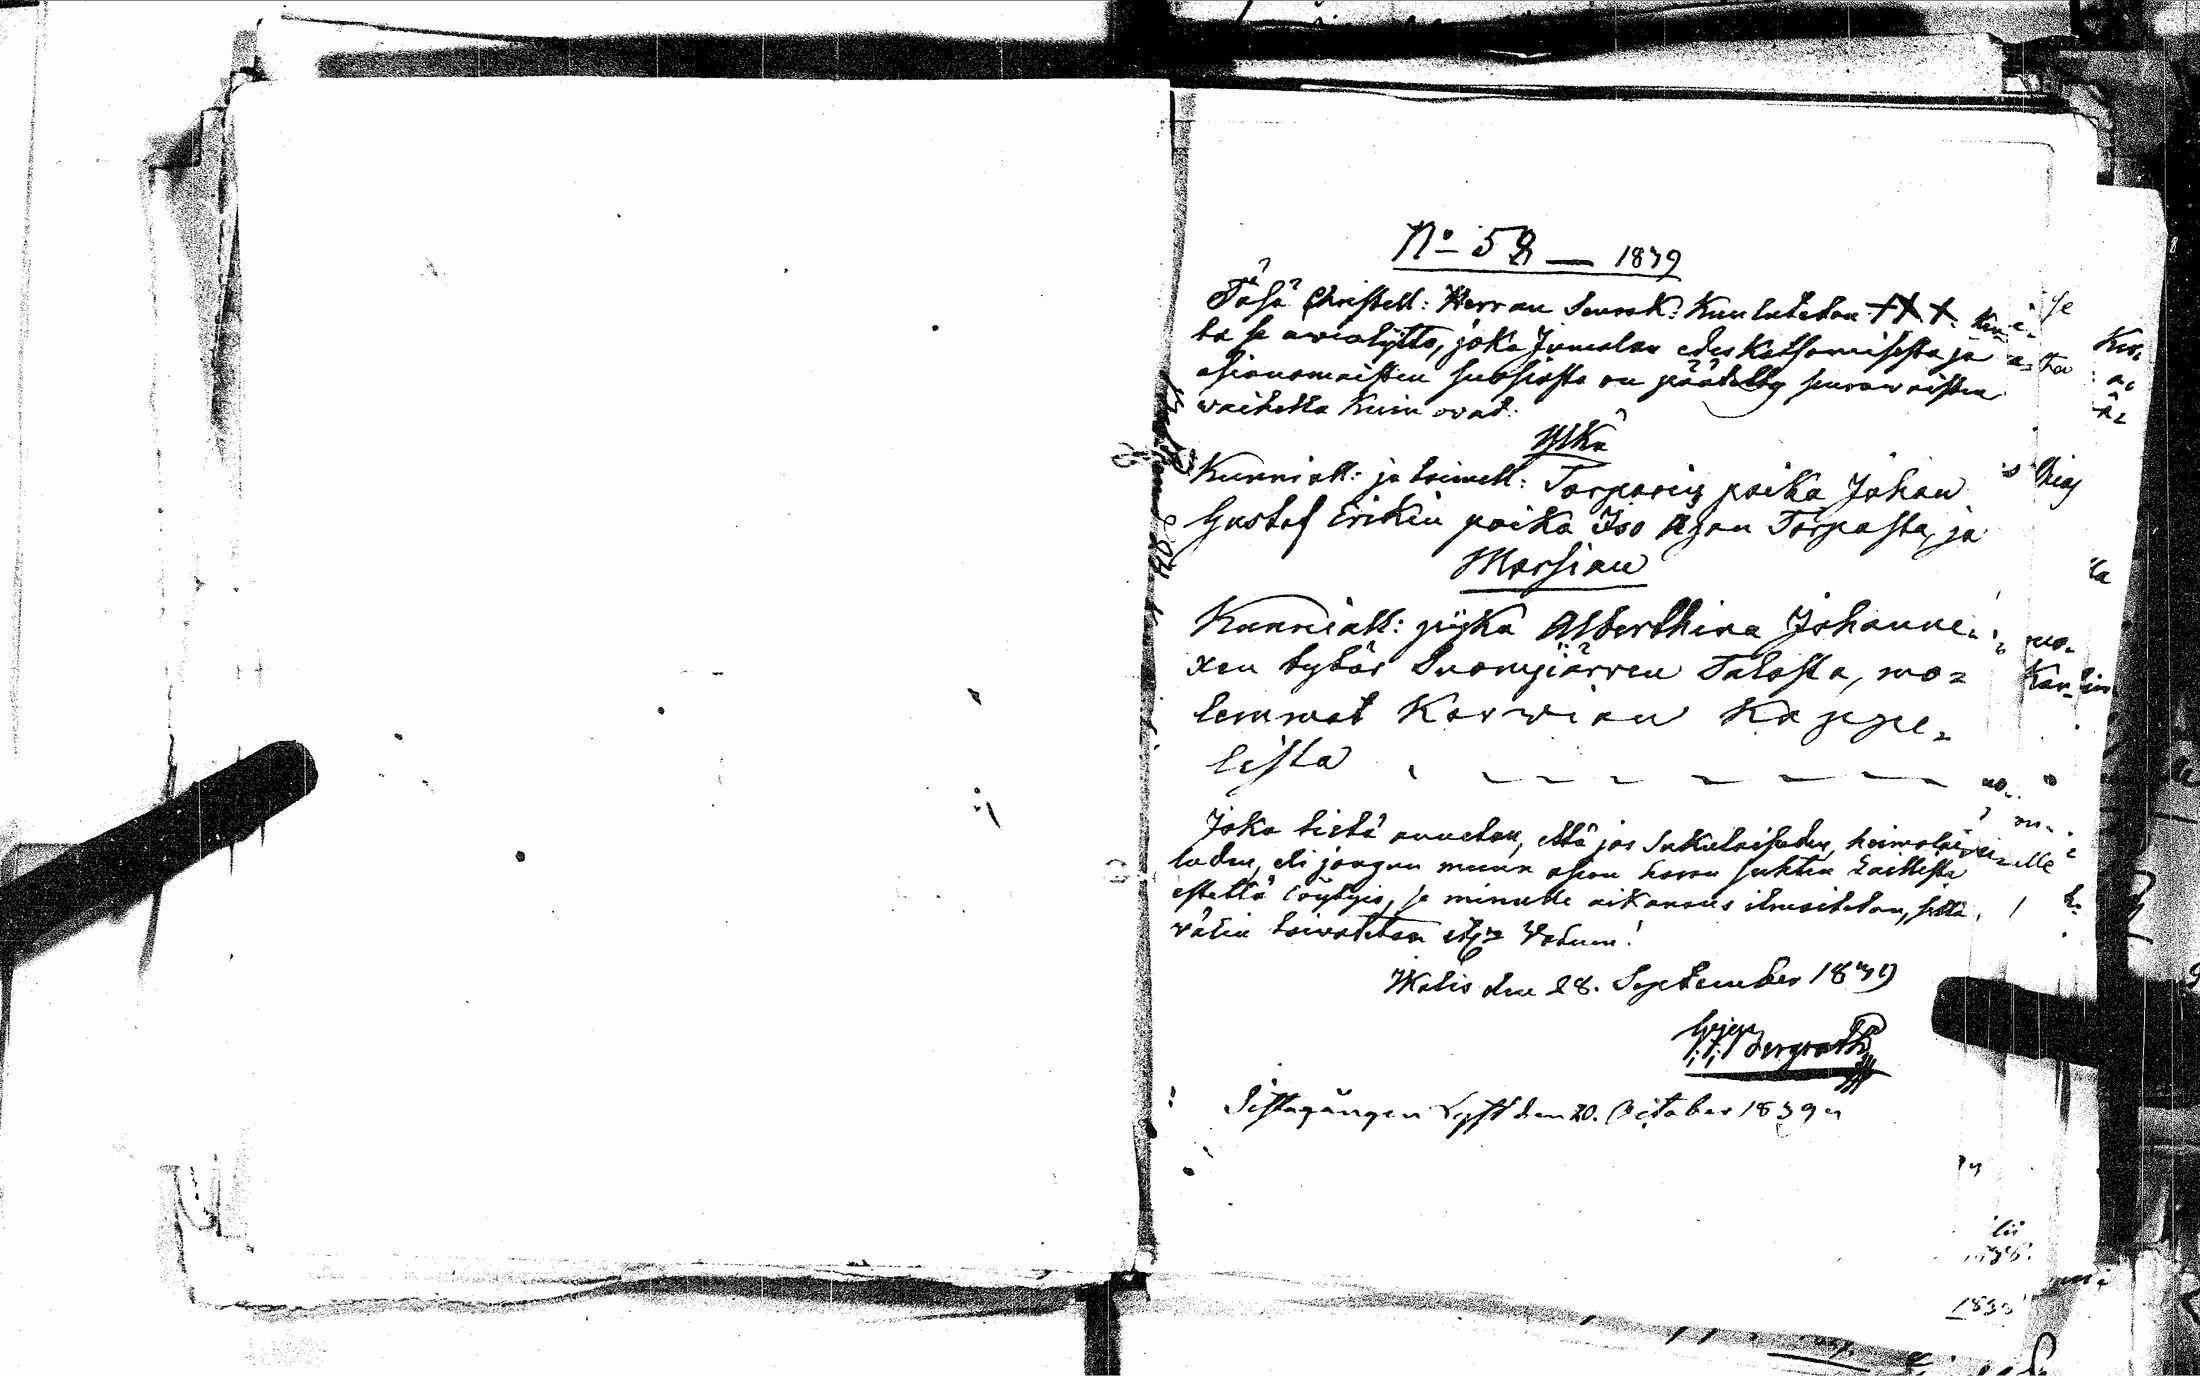 No 52 — 1839
Täsä Christell: Herran Seurak: Kuulutetan +++.
ta se awiokytto, joka Jumalan edeskatsomisesta ja
asianomaisten suosiosta on päätetty seurawaisten
waihella kuin ovat:
Ylkä
Kunniall: ja toimell: Torparin poika Johan
Gustaf Erikin poika Iso Ajan Torpasta, ja
Morsian
Kunniall: pijka Alberthina Johanne-
xen tytär Suomijärven Talosta, mo-
lemmat Karwian Kappe-
lista
Joka tietä annetan, että jos Sukulaisuden, heimolai-
suden, eli jongun muun asian tavan suhten laillista
estettä löytyis, se minulle aikanans ilmoitetan, sillä
välin toivotetan etc Votum!
Ikalis den 28. September 1839
Bergroth
Sista gången Lyst den 20. October 1839